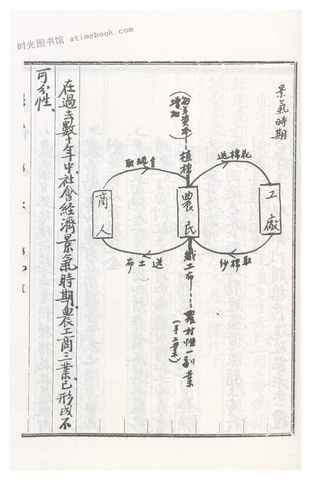 时光图书馆 atimebook.com
景氣時期
工廠
送棉花
取棉紗
農民
植棉
織工布
農村惟一副業
(手工業)
送土布
商人
在過去數十年中,社會經濟景氣時期,農工商三業,已形成不
可分性、